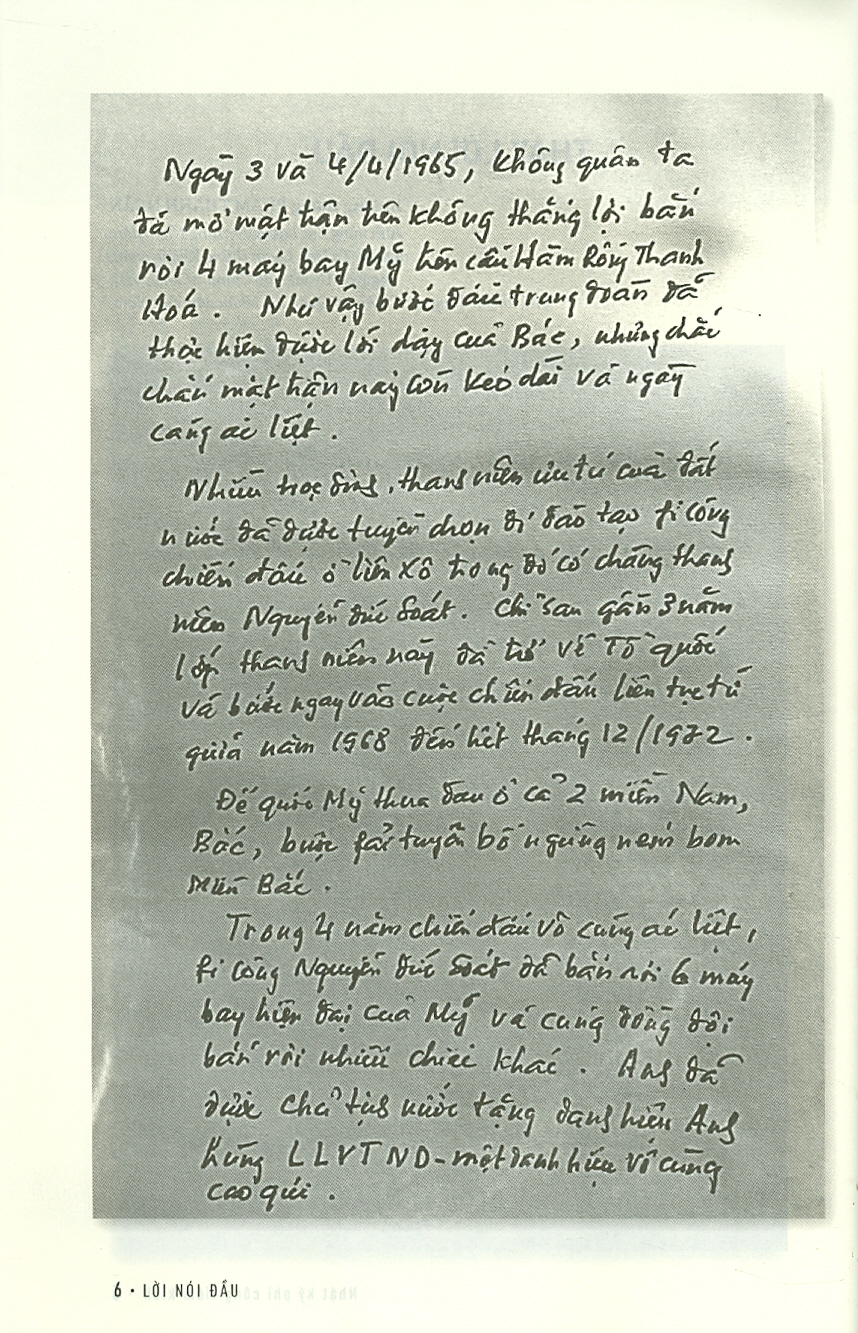 Ngày 3 và 4/4/1965, không quân ta
đã mở mặt trận trên không thắng lợi bắn
rơi 4 máy bay Mỹ trên cầu Hàm Rồng Thanh
Hoá. Như vậy bước đầu trung đoàn đã
thực hiện được lời dạy của Bác, nhưng chắc
chắn mặt trận này còn kéo dài và ngày
càng ác liệt.
Nhiều học sinh, thanh niên ưu tú của đất
nước đã được tuyển chọn đi đào tạo fi công
chiến đấu ở liên Xô trong đó có chàng thanh
niên Nguyễn Đức Soát. Chỉ sau gần 3 năm
lớp thanh niên này đã trở về Tổ quốc
và bước ngay vào cuộc chiến đấu liên tục từ
giữa năm 1968 đến hết tháng 12/1972.
Đế quốc Mỹ thua đau ở cả 2 miền Nam,
Bắc, buộc fải tuyên bố ngừng ném bom
Miền Bắc.
Trong 4 năm chiến đấu vô cùng ác liệt,
fi công Nguyễn Đức Soát đã bắn rơi 6 máy
bay hiện đại của Mỹ và cùng đồng đội
bắn rơi nhiều chiếc khác. Anh đã
được Chủ tịch nước tặng danh hiệu Anh
hùng LLVTND - một danh hiệu vô cùng
cao quí.
6 • LỜI NÓI ĐẦU